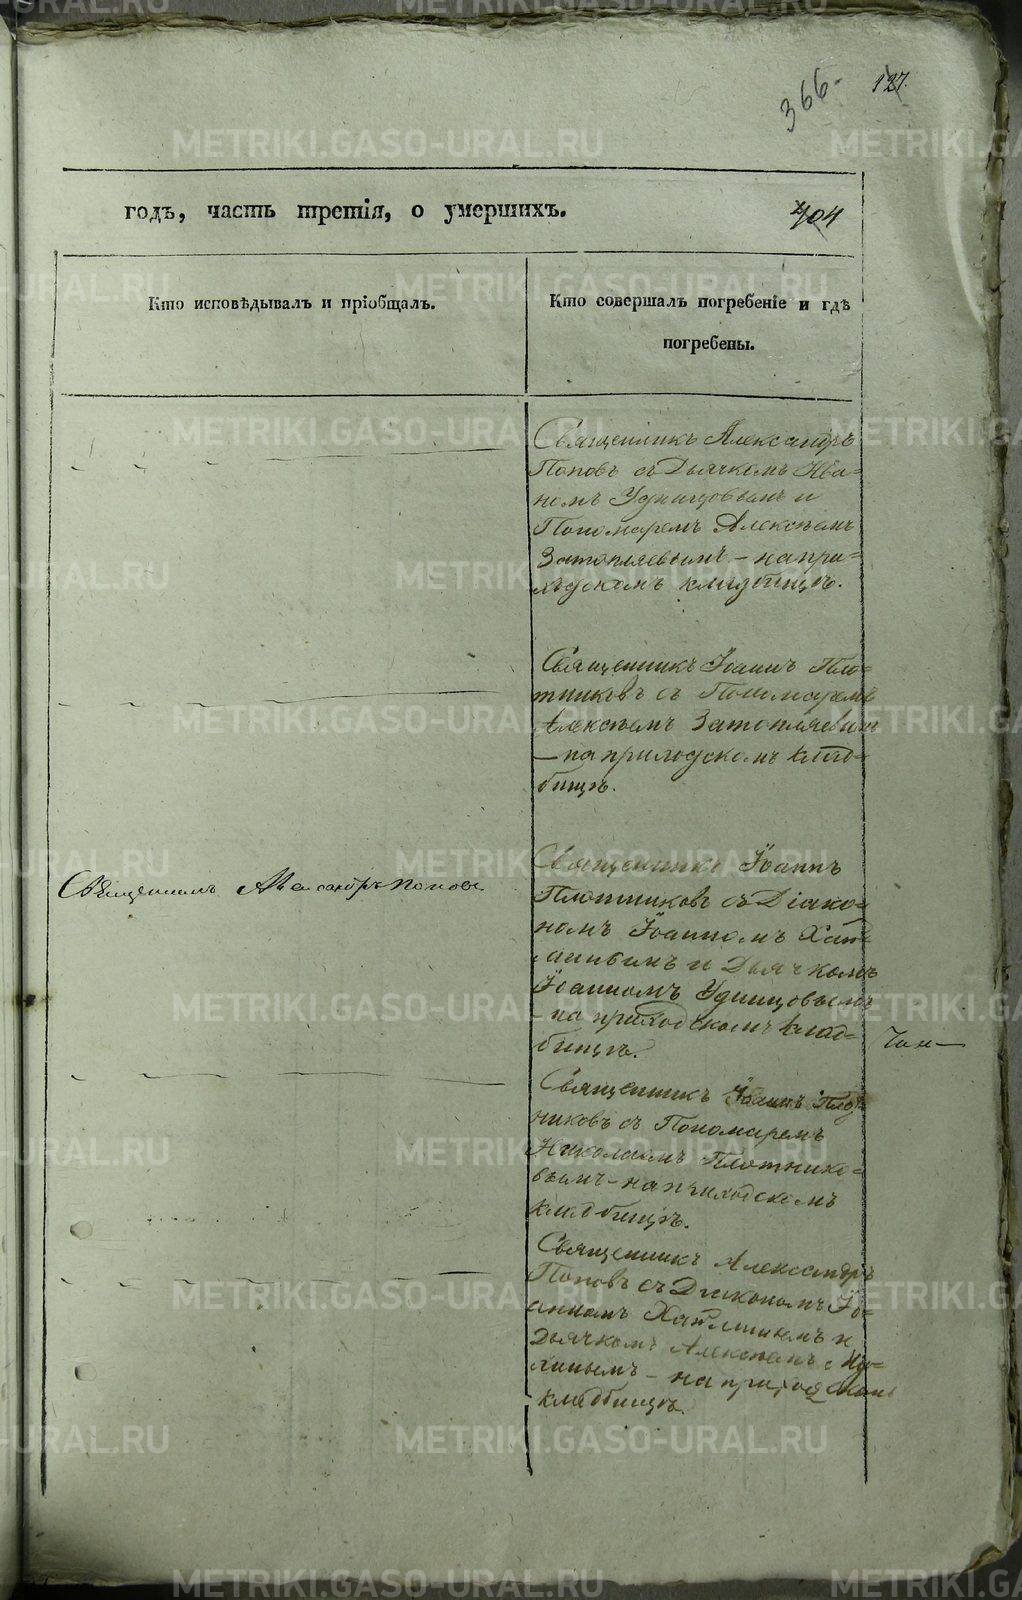 366.
127.
годъ, часть третія, о умершихъ.
404
Кто исповѣдывалъ и пріобщалъ.
Кто совершалъ погребеніе и гдѣ
погребены.
Священникъ Александръ
Поповъ съ Дьячкомъ Ива-
номъ Удинцовымъ и
Пономаремъ Алексѣемъ
Затопляевымъ – на при-
ходскомъ кладбищѣ.
Священникъ Іоаннъ Пло-
тниковъ съ Пономаремъ
Алексѣемъ Затопляевым
– на приходскомъ клад-
бищѣ.
Священникъ Александръ Поповъ
Священникъ Іоаннъ
Плотниковъ съ Діако-
номъ Іоанномъ
и Дьячкомъ
Іоанномъ Удинцовымъ
– на приходскомъ клад-
бищѣ.
Священникъ Іоаннъ Плот
никовъ съ Пономаремъ
Николаемъ Плотнико-
вымъ – на приходскомъ
кладбищѣ.
Священникъ Александръ
Поповъ съ Діакономъ Іо-
анномъ и
Дьячкомъ Алексѣемъ
– на приходскомъ
кладбищѣ.
METRIKI.GASO-URAL.RU